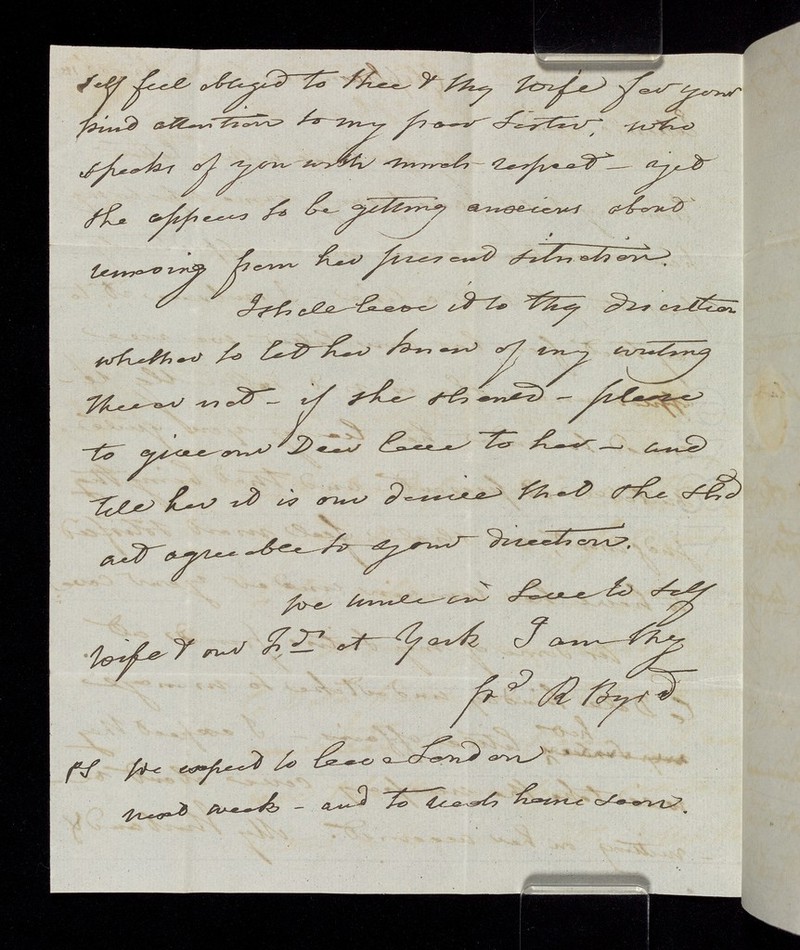 self feel obliged to thee & thy Wife for your
kind attention to my poor Sister, who
speaks of you with much respect – yet
she appears to be getting anxious about
removing from her present situation.
I shall leave it to thy discretion
whether to let her know of my writing
thee or not – if she should – please
to give our Dear love to her – and
tell her it is our desire that she shd
act agreeable to your direction.
We unite in Love to self
Wife & our Frds at York I am thy
frd R Byrd
PS We expect to leave London
next week – and to reach home soon.